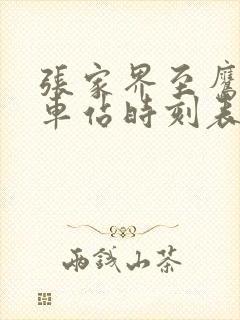 張家界至鷹
車佔時刻表
兩錢山茶